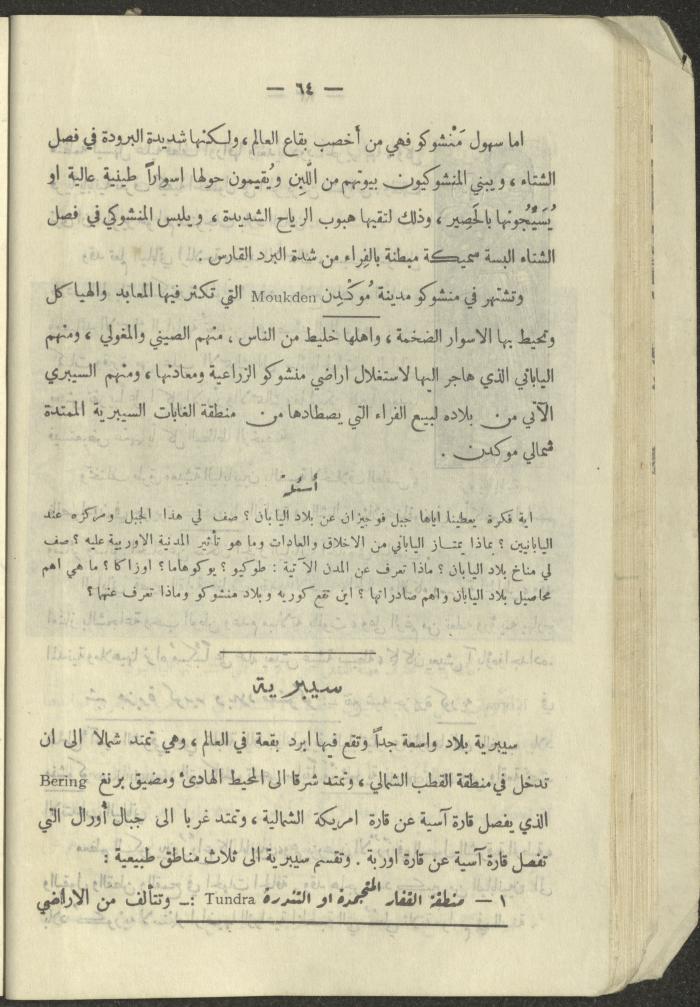 — ٦٤ —
اما سهول مَنْشوكو فهي من أخصب بقاع العالم ، ولكنها شديدة البرودة في فصل
الشتاء ، ويبني المنشوكيون بيوتهم من اللَّبِن ويُقيمون حولها اسواراً طينية عالية او
يُسَيِّجُونها بالحَصِير ، وذلك لتقيها هبوب الرياح الشديدة ، ويلبس المنشوكي في فصل
الشتاء البسة سميكة مبطنة بالفِراء من شدة البرد القارس .
وتشتهر في منشوكو مدينة مُوكْدِن Moukden التي تكثر فيها المعابد والهياكل
وتحيط بها الاسوار الضخمة ، واهلها خليط من الناس . منهم الصيني والمغولي ، ومنهم
الياباني الذي هاجر اليها لاستغلال اراضي منشوكو الزراعية ومعادنها ، ومنهم السيبري
الآتي من بلاده لبيع الفراء التي يصطادها من منطقة الغابات السيبرية الممتدة
شمالي موكدن .
أسئلة
اية فكرة يعطينا اياها جبل فوجيزان عن بلاد اليابان ؟ صف لي هذا الجبل ومركزه عند
اليابانيين ؟ بماذا يمتاز الياباني من الاخلاق والعادات وما هو تأثير المدنية الاوربية عليه ؟ صف
لي مناخ بلاد اليابان ؟ ماذا تعرف عن المدن الآتية : طوكيو ؟ يوكوهاما ؟ اوزاكا ؟ ما هي اهم
محاصيل بلاد اليابان واهم صادراتها ؟ اين تقع كوريه وبلاد منشوكو وماذا تعرف عنها ؟
سيبرية
سيبرية بلاد واسعة جداً وتقع فيها ابرد بقعة في العالم ، وهي تمتد شمالا الى ان
تدخل في منطقة القطب الشمالي ، وتمتد شرقا الى المحيط الهادئ ومضيق برنغ Bering
الذي يفصل قارة آسية عن قارة امريكة الشمالية ، وتمتد غربا الى جبال أورال التي
تفصل قارة آسية عن قارة اوربة . وتقسم سيبرية الى ثلاث مناطق طبيعية :
١ — منطقة القفار المتجمدة او التندرة Tundra :ـ وتتألف من الاراضي